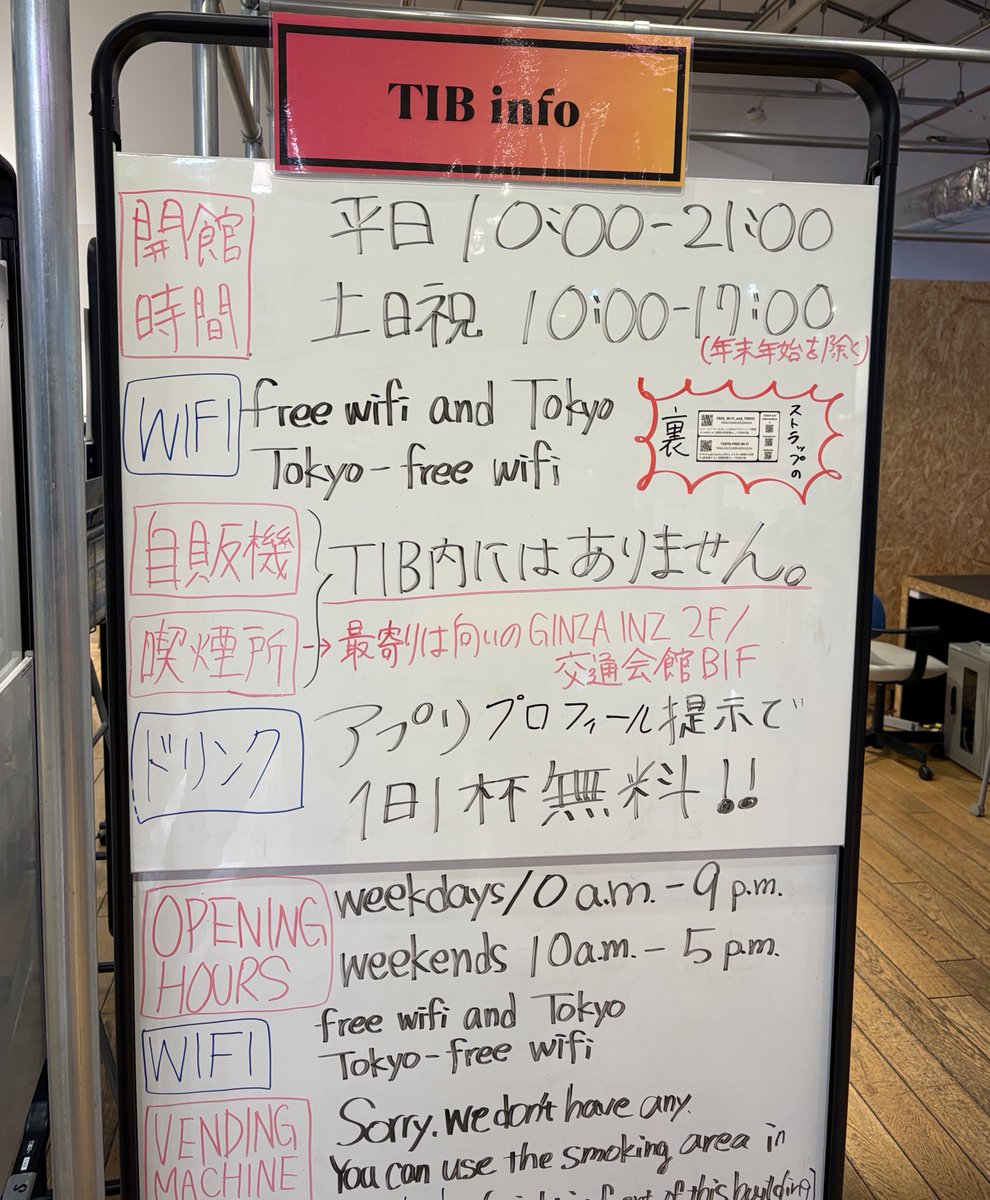 TIB info
開館
時間
平日 10:00-21:00
土日祝 10:00-17:00
(年末年始を除く)
WIFI
free wifi and Tokyo
Tokyo-free wifi
ストラップの
裏
FREE_Wi-Fi_and_TOKYO
TOKYO FREE Wi-Fi
自販機
喫煙所
TIB内にはありません。
→最寄りは向いのGINZA INZ 2F/
交通会館B1F
ドリンク
アプリプロフィール提示で
1日1杯無料!!
OPENING
HOURS
weekdays/10 a.m.-9 p.m.
weekends 10a.m.-5 p.m.
WIFI
free wifi and Tokyo
Tokyo-free wifi
VENDING
MACHINE
Sorry. we don't have any.
You can use the smoking area in
front of this building